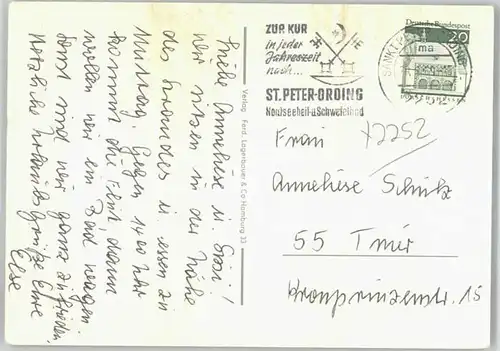 Liebe Anneliese u. Evi!
wir sitzen in der Nähe
des Strandes u. essen zu
Mittag. Gegen 14.00 Uhr
kommt die Flut, dann
wollen wir ein Bad wagen
Sonst sind wir ganz zufrieden.
Herzliche Urlaubsgrüße Eure
Else
Verlag Ferd. Lagerbauer & Co Hamburg 33
ZUR KUR
in jeder
Jahreszeit
nach...
ST. PETER-ORDING
Nordseeheil-u. Schwefelbad
Deutsche Bundespost
20
ma
Frau
+2252
Anneliese Schütz
55 Trier
Kronprinzenstr. 15